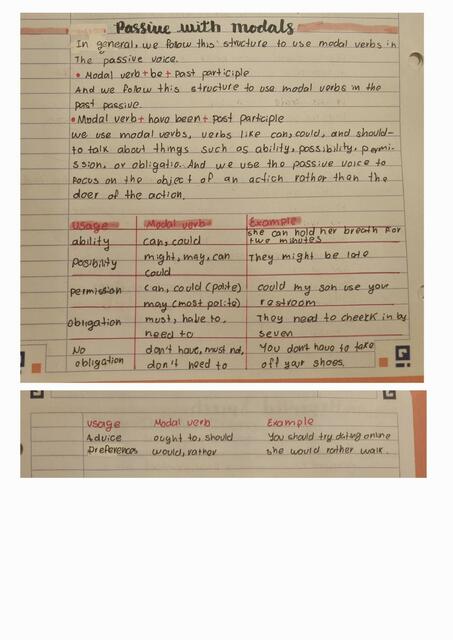 Passive with modals
In general, we follow this structure to use modal verbs in
The passive voice.
• Modal verb + be + Past participle
And we follow this structure to use modal verbs in the
past passive.
• Modal verb + have been + post participle
we use modal verbs, verbs like can, could, and should-
to talk about things such as ability, possibility, permi-
ssion, or obligatio. And we use the passive voice to
Focus on the object of an action rather than the
doer of the action.
Usage Modal verb Example
ability can, could she can hold her breath for two minutes
Posibility might, may, can could They might be late
Permission can, could (polite) may (most polite) could my son use your restroom
Obligation must, have to, need to They need to cheeck in by seven
No obligation don't have, must not, don't need to You don't have to take off your shoes.
Usage Modal verb Example
Advice ought to, should You should try dating online
Preferences would, rather she would rather walk.